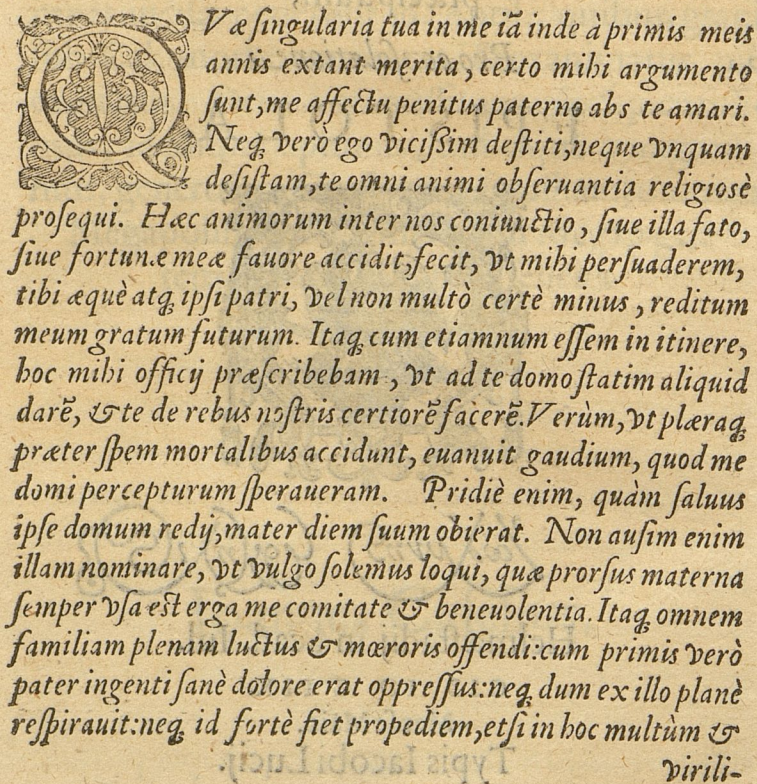 QVæ ſingularia tua in me iã inde à primis meis
annis extant merita, certo mihi argumento
ſunt, me affectu penitus paterno abs te amari.
Neq; verò ego viciſsim deſtiti, neque vnquam
deſiſtam, te omni animi obſeruantia religioſè
proſequi. Hæc animorum inter nos coniunctio, ſiue illa fato,
ſiue fortunæ meæ fauore accidit, fecit, vt mihi perſuaderem,
tibi æquè atq; ipſi patri, vel non multò certè minus, reditum
meum gratum futurum. Itaq; cum etiamnum eſſem in itinere,
hoc mihi officij præſcribebam, vt ad te domo ſtatim aliquid
darẽ, & te de rebus noſtris certiorẽ facerẽ. Verùm, vt plæraq;
præter ſpem mortalibus accidunt, euanuit gaudium, quod me
domi percepturum ſperaueram. Pridiè enim, quàm ſaluus
ipſe domum redij, mater diem ſuum obierat. Non auſim enim
illam nominare, vt vulgo ſolemus loqui, quæ prorſus materna
ſemper vſa eſt erga me comitate & beneuolentia. Itaq; omnem
familiam plenam luctus & mœroris offendi: cum primis verò
pater ingenti ſanè dolore erat oppreſſus: neq; dum ex illo planè
reſpirauit: neq; id fortè fiet propediem, etſi in hoc multùm &
virili-